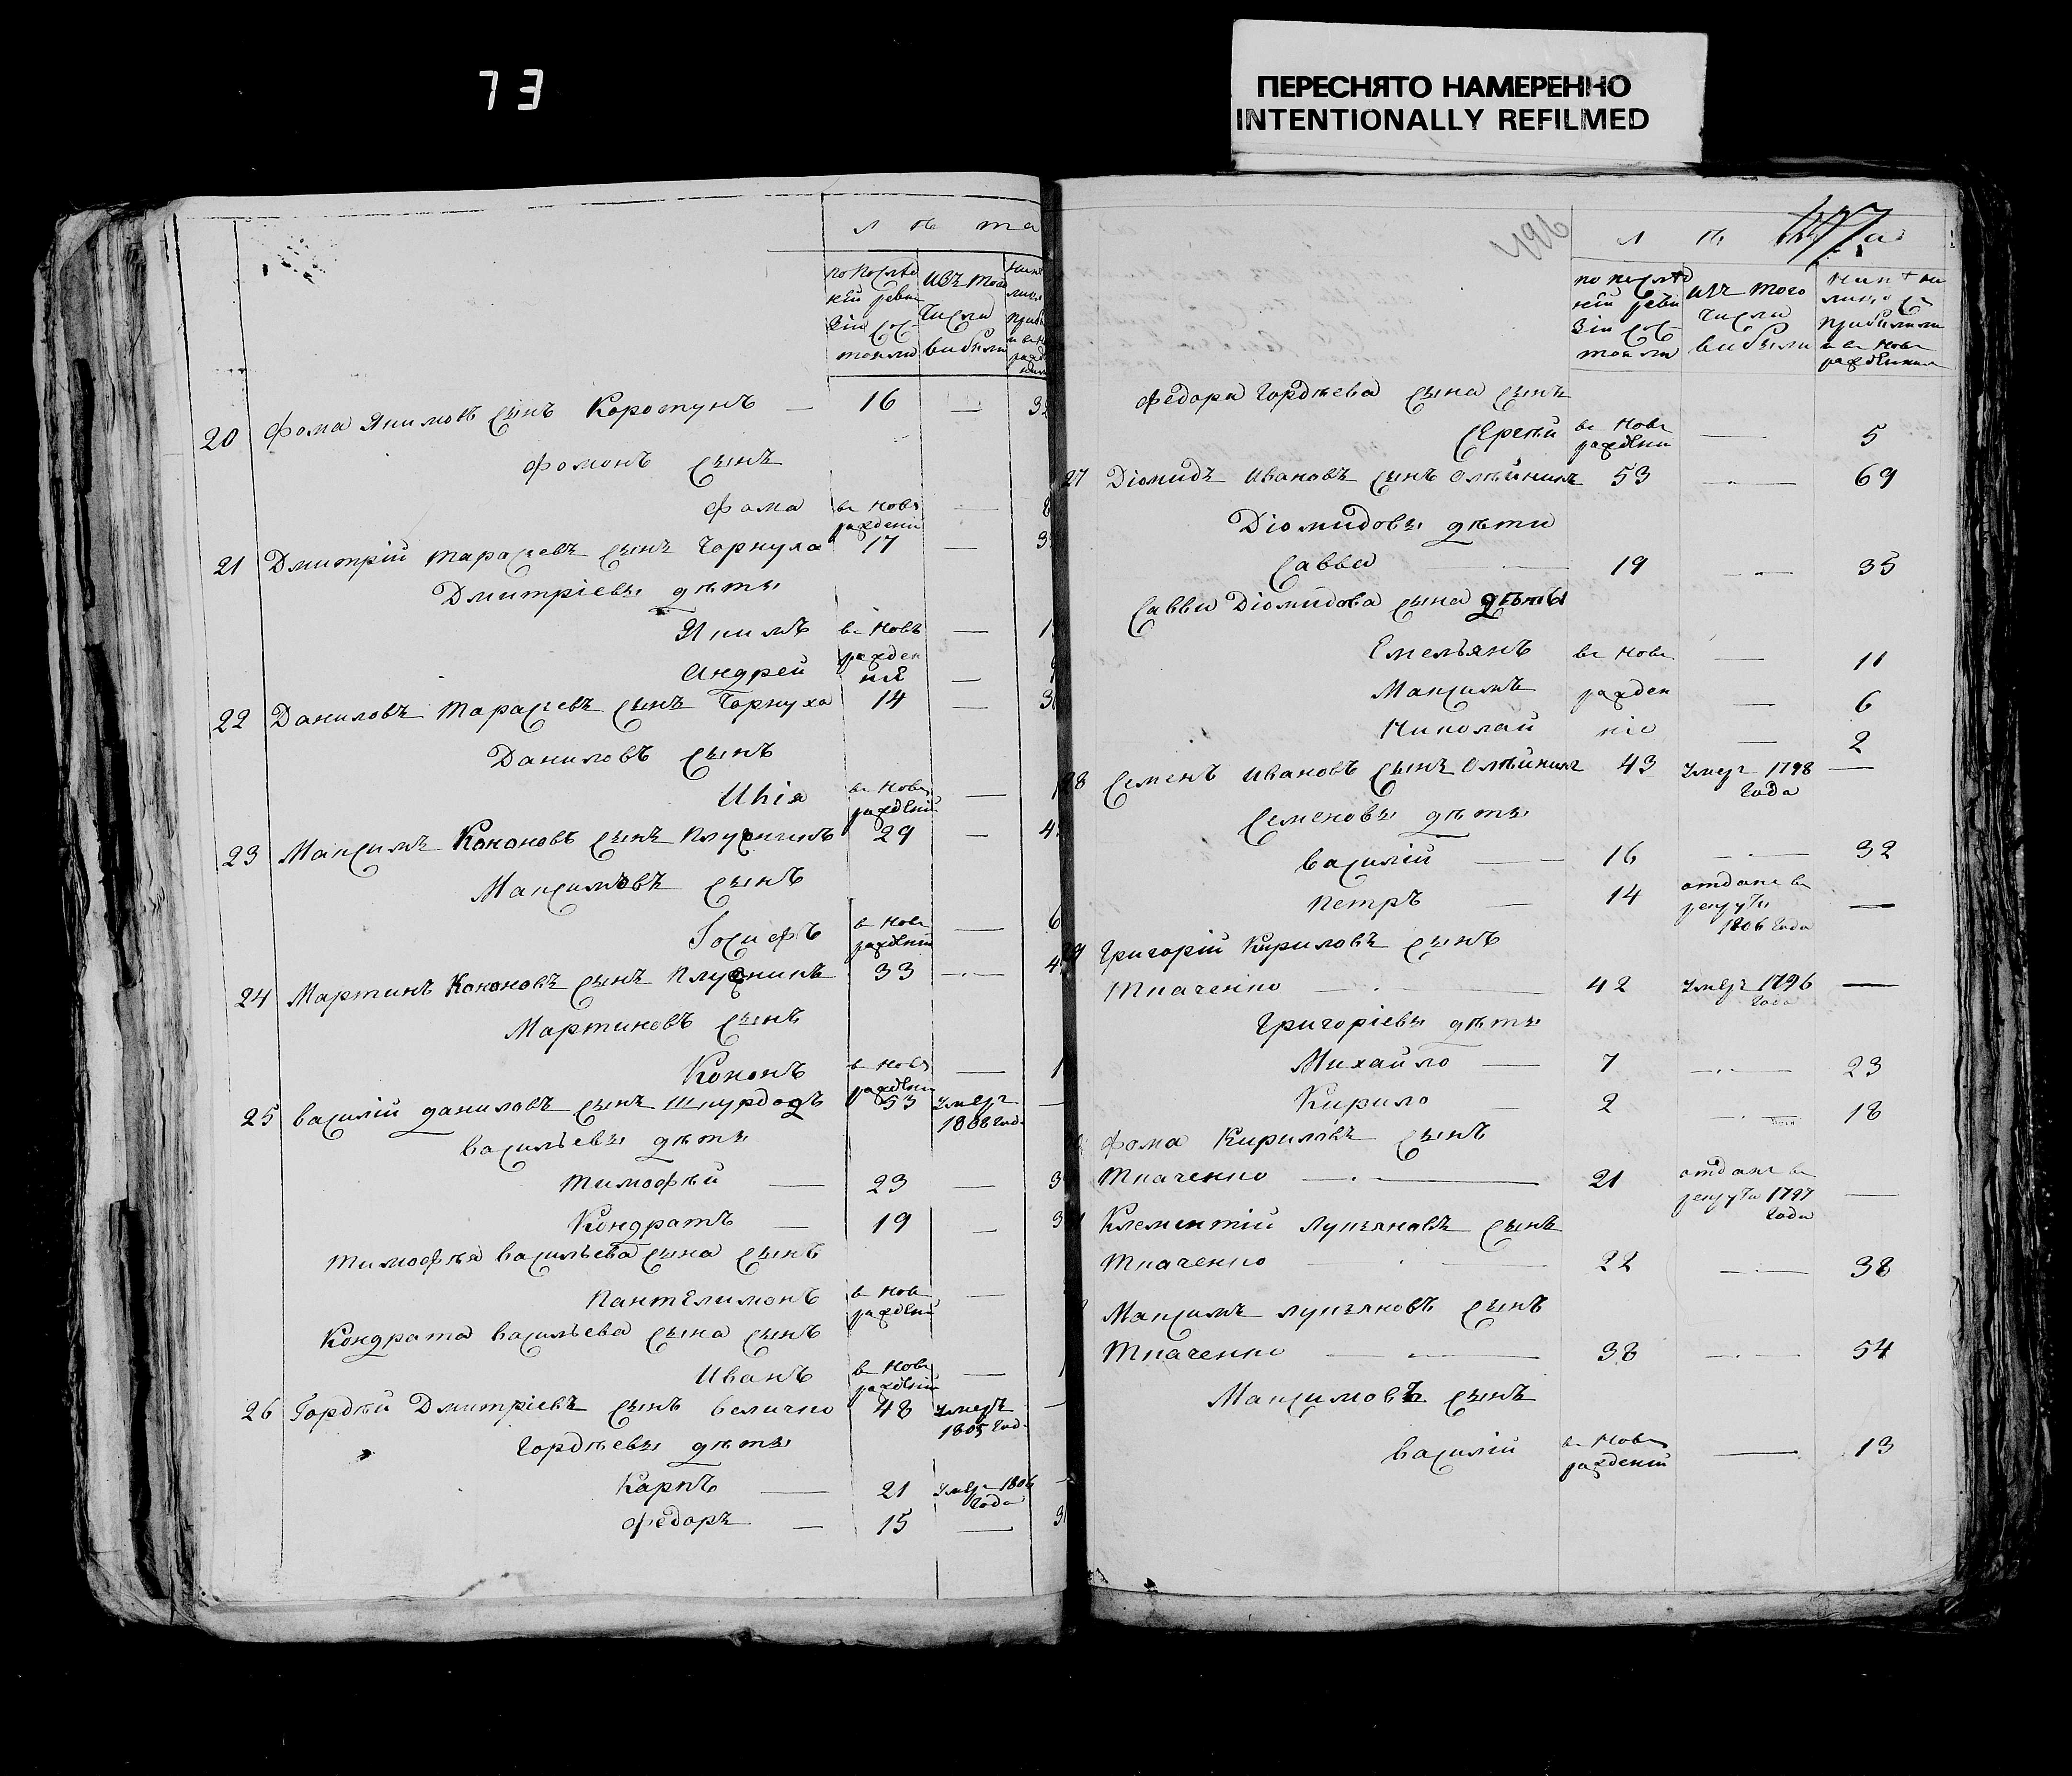 73
ПЕРЕСНЯТО НАМЕРЕННО
INTENTIONALLY REFILMED
л ѣ та
по послѣд
ней реви
зіи сос
тояли
изъ того
числа
выбыли
20 Фома Якимовъ сынъ Коротунъ — 16 —
Фоминъ сынъ
Фома въ новѣ
рожденіи —
21 Дмитрій Тарасьевъ сынъ Чорнуха 17 —
Дмитріевы дѣты
Якимъ въ новѣ —
Андрей рожден
ніи —
22 Даниловъ Тарасьевъ сынъ Чорнуха 14 —
Даниловъ сынъ
Илія въ новѣ
рожденіи —
23 Максимъ Кононовъ сынъ 29 —
Максимовъ сынъ
Іосифъ въ новѣ
рожденіи —
24 Мартинъ Кононовъ сынъ 33 —
Мартиновъ сынъ
Кононъ въ новѣ
рожденіи —
25 Василій Даниловъ сынъ 53 умеръ
1808 года
Васильевы дѣты
Тимофѣй — 23 —
Кондратъ — 19 —
Тимофѣя Васильева сына сынъ
Пантелимонъ въ нов
рожденіи —
Кондрата Васильева сына сынъ
Иванъ въ новѣ
рожденіи —
26 Гордѣй Дмитріевъ сынъ Величко 48 умеръ
1805 год
Гордѣевы дѣты
Карпъ — 21 умеръ 1806
года
Федоръ — 15 —
496
л ѣ та
по послѣд
ней реви
зіи сос
тояли
изъ того
числа
выбыли
нынѣ на
лицо съ
прибылыми
и въ новѣ
рожденными
Федора Гордѣева сына сынъ
Сергѣй въ новѣ
рожденіи — 5
27 Діомидъ Ивановъ сынъ Олѣйникъ 53 — 69
Діомидовы дѣти
Савва 19 — 35
Саввы Діомидова сына дѣты
Емельянъ въ новѣ — 11
Максимъ рожден — 6
Николай ніе — 2
28 Семенъ Ивановъ сынъ Олѣйникъ 43 умеръ 1798 —
года
Семеновы дѣты
Василій — 16 — 32
Петръ — 14 отданъ въ
рекруты
1806 года —
29 Григорій Кириловъ сынъ
Ткаченко — 42 умеръ 1796 —
года
Григоріевы дѣты
Михайло — 7 — 23
Кирило — 2 — 18
Фома Кириловъ сынъ
Ткаченко — 21 отданъ въ
рекруты 1797
года —
Клементій Лукьяновъ сынъ
Ткаченко — 22 — 38
Максимъ Лукьяновъ сынъ
Ткаченко — 38 — 54
Максимовъ сынъ
Василій въ новѣ
рожденіи — 13